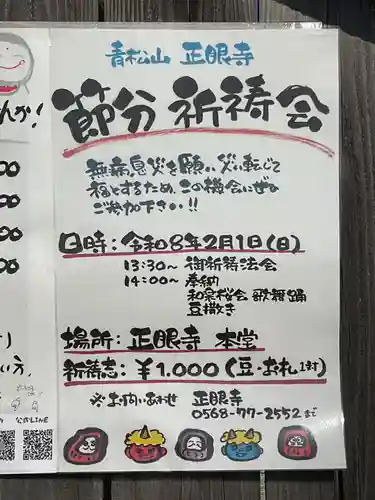 青松山 正眼寺
節分祈祷会
無病息災を願い、災い転じて
福とするため、この機会にぜひ
ご参加下さい!!
日時:令和8年2月1日(日)
13:30〜 御祈祷法会
14:00〜 奉納
和泉桜会 歌舞踊
豆撒き
場所:正眼寺 本堂
祈祷志:¥1,000(豆・お札1対)
※お問いあわせ 正眼寺
0568-77-2552まで
んか!
00
00
00
00
い方、
公式LINE